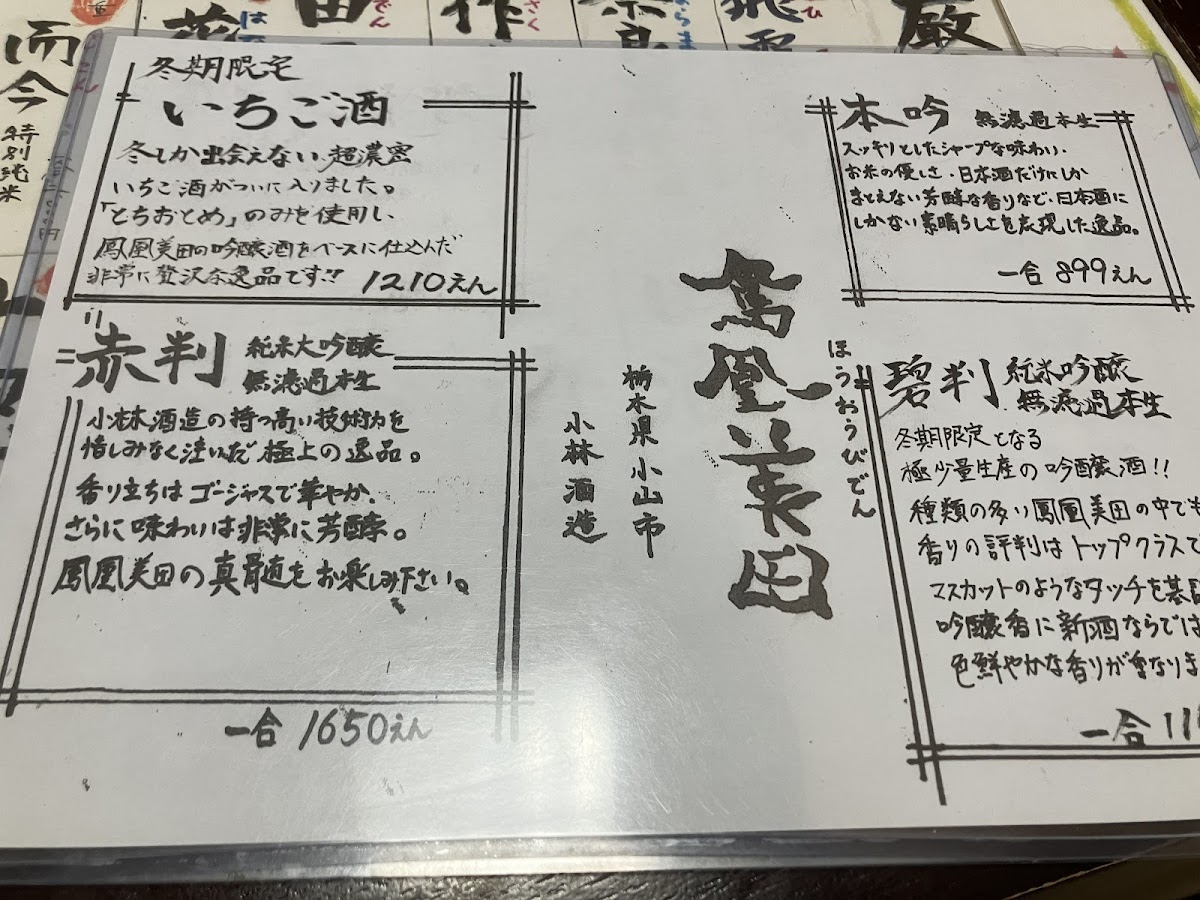 冬期限定
いちご酒
冬しか出会えない、超濃密
いちご酒がついに入りました。
「とちおとめ」のみを使用し、
鳳凰美田の吟醸酒をベースに仕込んだ
非常に贅沢な逸品です!!
1210えん
赤判
純米大吟醸
無濾過本生
小林酒造の持つ高い技術力を
惜しみなく注いだ極上の逸品。
香り立ちはゴージャスで華やか、
さらに味わいは非常に芳醇。
鳳凰美田の真髄をお楽しみ下さい。
一合 1650えん
鳳凰美田
ほうおうびでん
栃木県小山市
小林酒造
本吟
無濾過本生
スッキリとしたシャープな味わい、
お米の優しさ、日本酒だけにしか
まとえない芳醇な香りなど、日本酒に
しかない素晴らしさを表現した逸品。
一合 899えん
碧判
純米吟醸
無濾過本生
冬期限定となる
極少量生産の吟醸酒!!
種類の多い鳳凰美田の中でも
香りの評判はトップクラスで
マスカットのようなタッチを基
吟醸香に新酒ならでは
色鮮やかな香りが重なりま
一合 11
而今
特別純米
作
さく
田
でん
厳